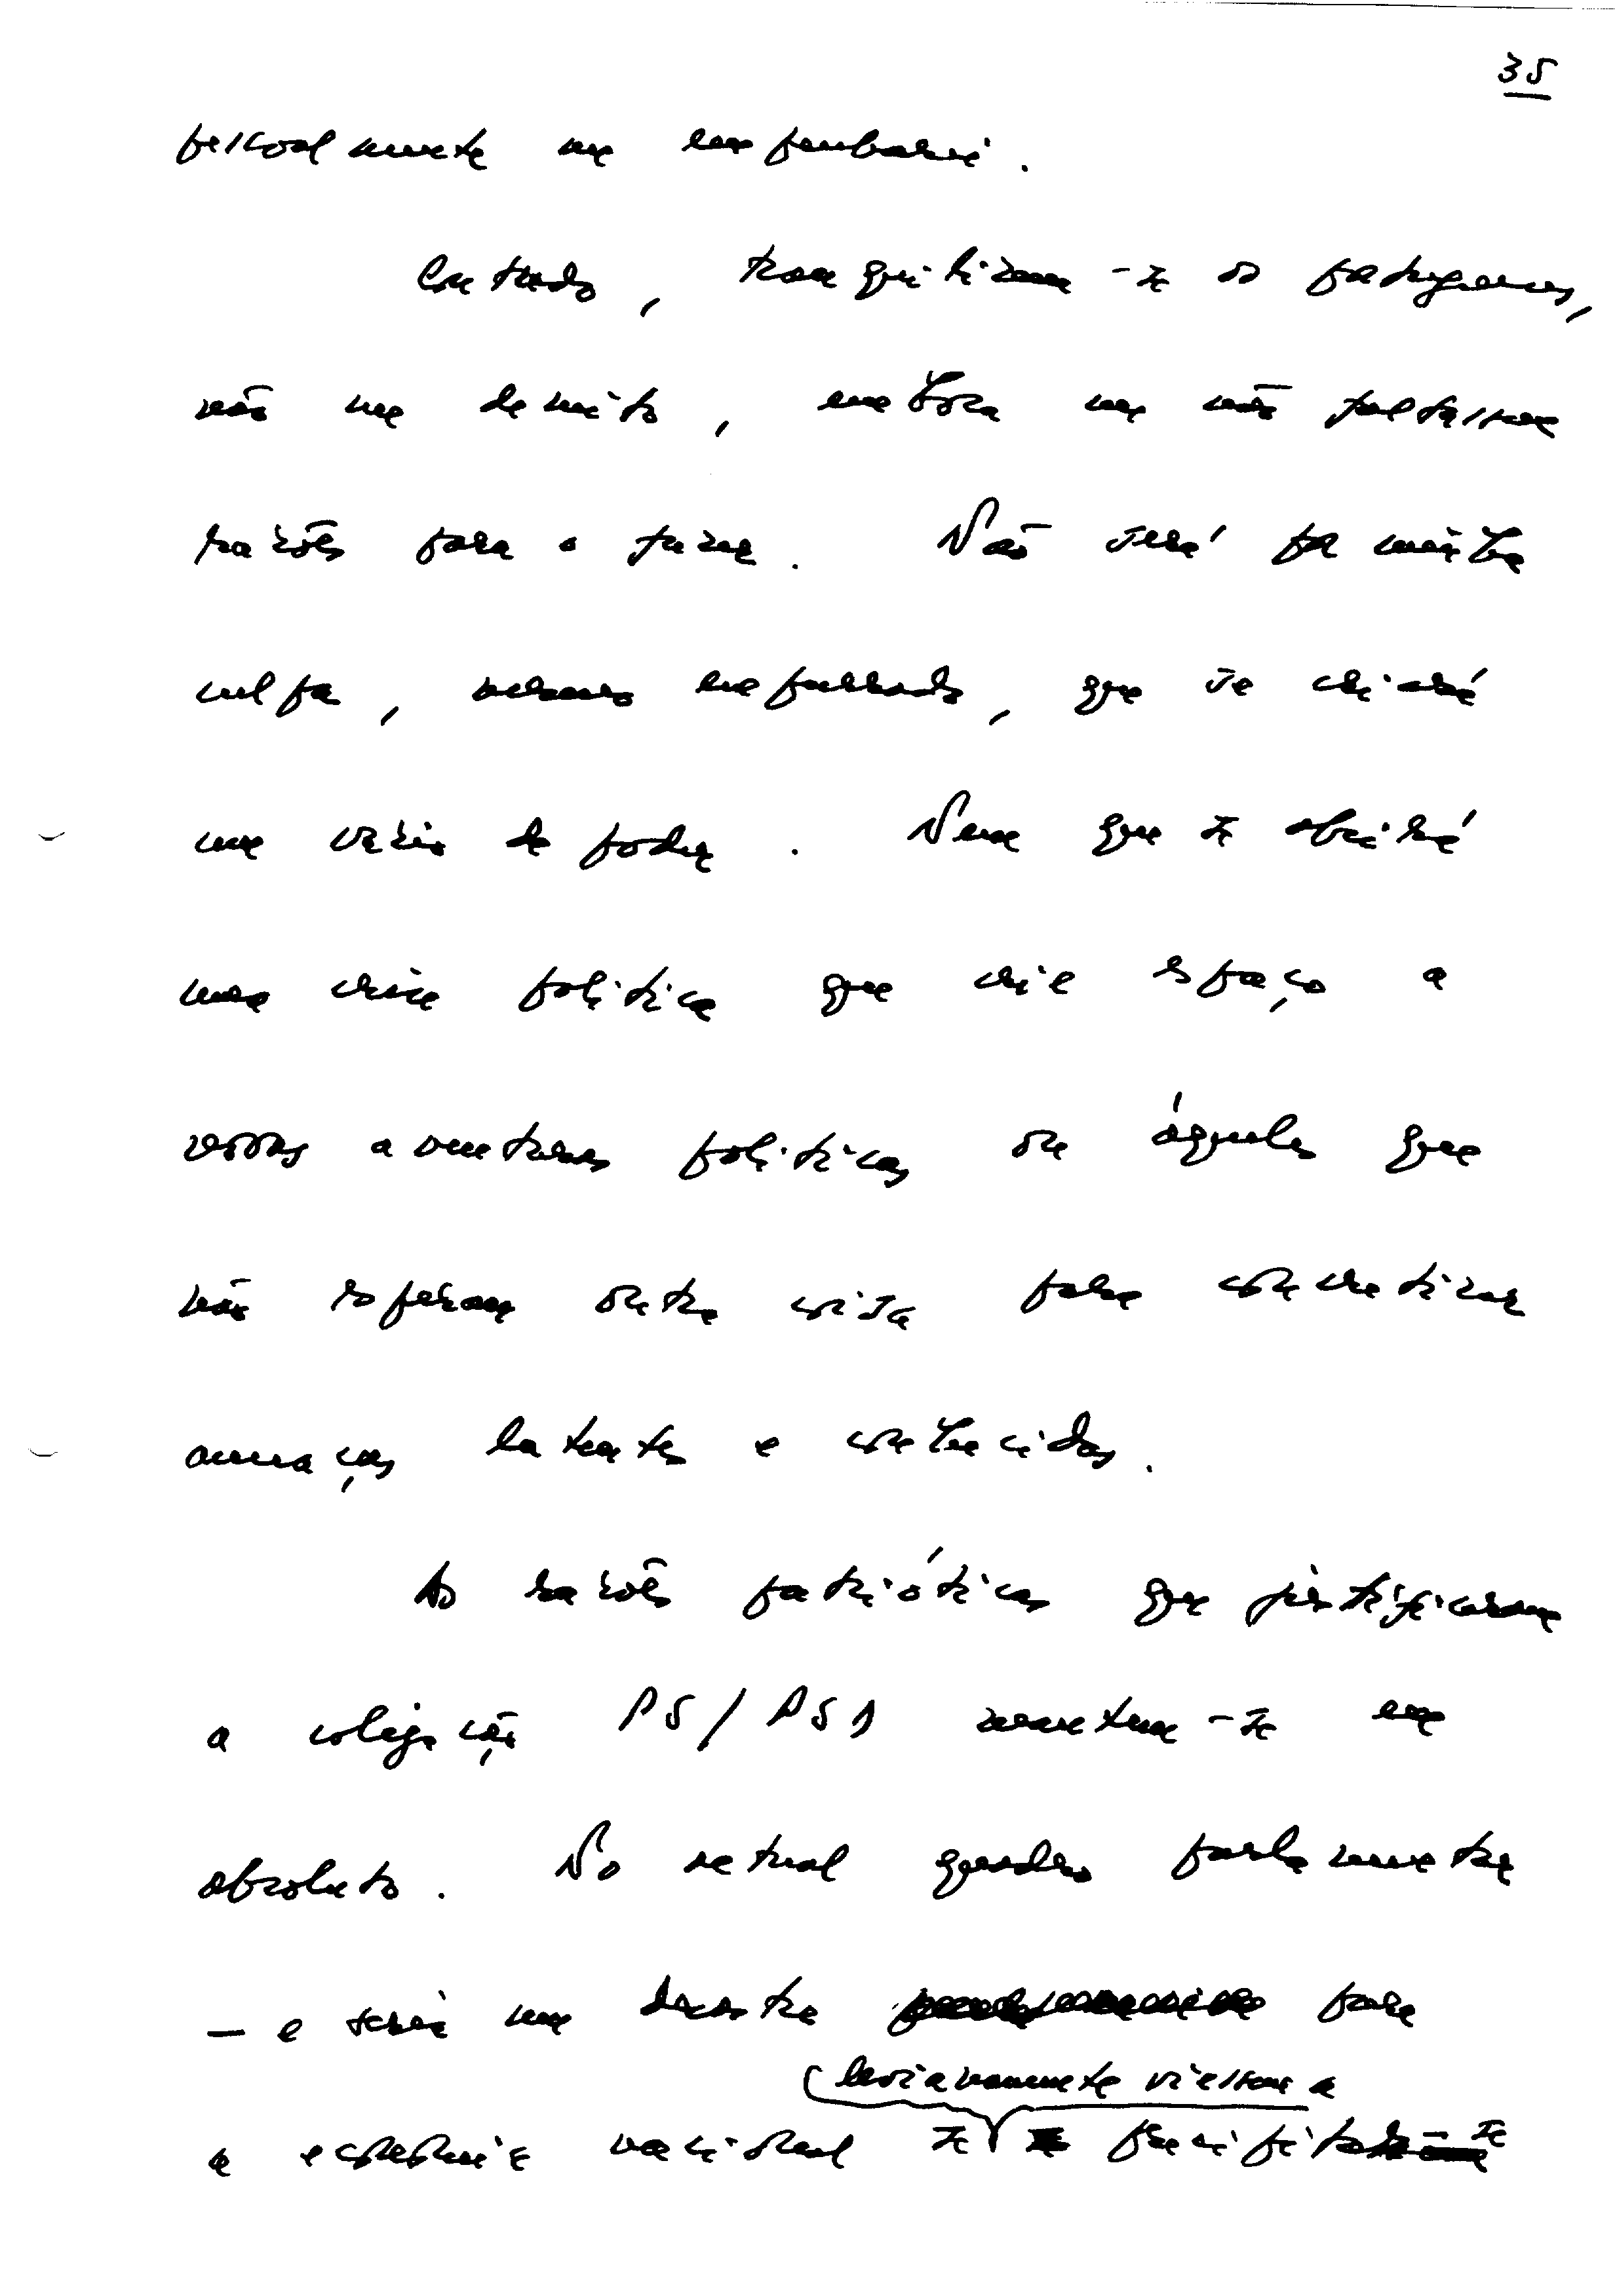 35
pessoalmente me empenharei.
Contudo, tranquilizem-se os portugueses,
não me demito, embora me não faltassem
razões para o fazer. Não será por minha
culpa, mesmo empurrado, que se criará
um vazio de poder. Nem que se abrirá
uma crise política que crie espaço a
vossas aventuras políticas ou àqueles que
não esperam outra coisa para concretizar
ameaças latentes e conhecidas.
As razões patrióticas que justificaram
a coligação PS/PSD mantem-se em
absoluto. No actual quadro parlamentar
— e seria um desastre para
levianamente viessem a
a economia nacional se precipitar-se